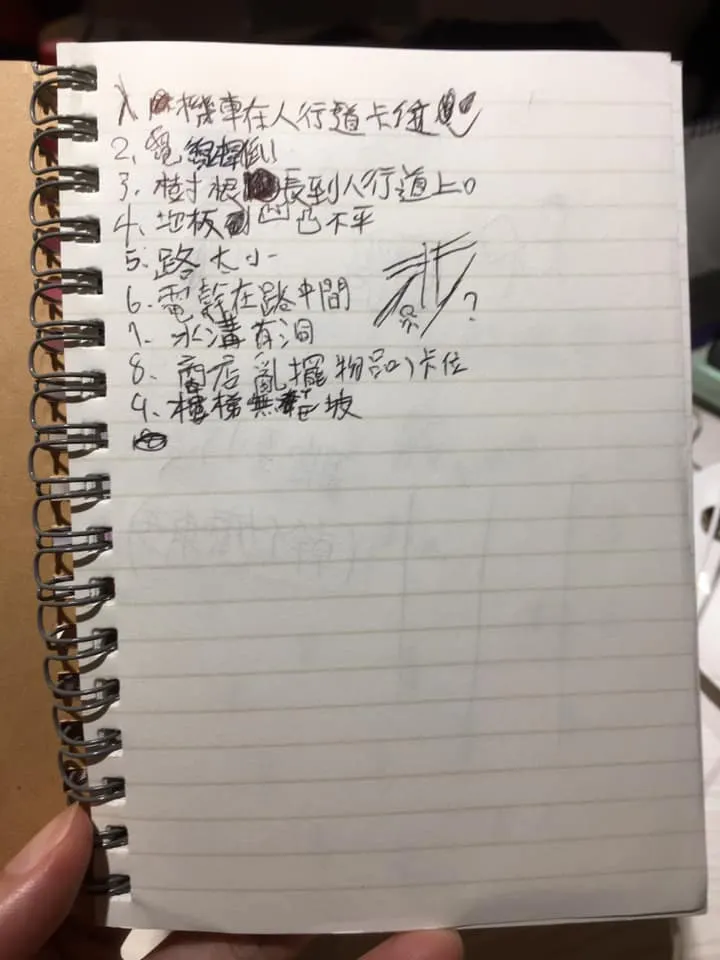 1. 機車在人行道卡位
2. 電
3. 樹根長到人行道上。
4. 地板凹凸不平
5. 路太小
6. 電幹在路中間
7. 水溝有洞
8. 商店亂擺物品(卡位
9. 樓梯無 坡
?